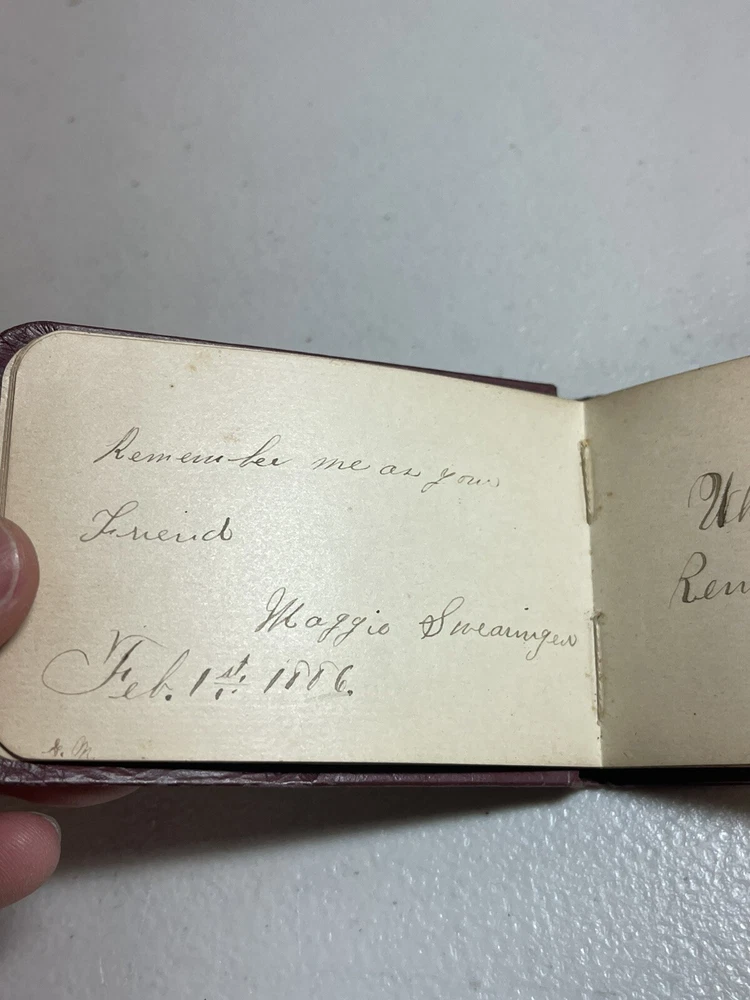 Remember me as your
Friend
Maggie Swearingen
Feb. 1st. 1886.